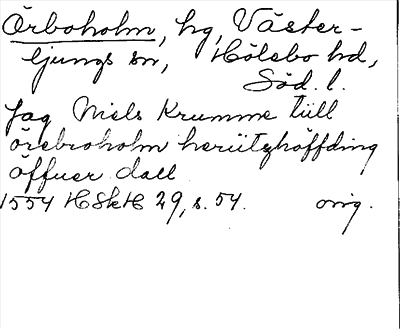 Örboholm, hg, Väster-
ljungs sn, Hölebo hd,
Söd. l.
Jag Niels Krumme till
örebroholm herützhöffding
öffuer dall
1554 HSkH 29, s. 54. orig.